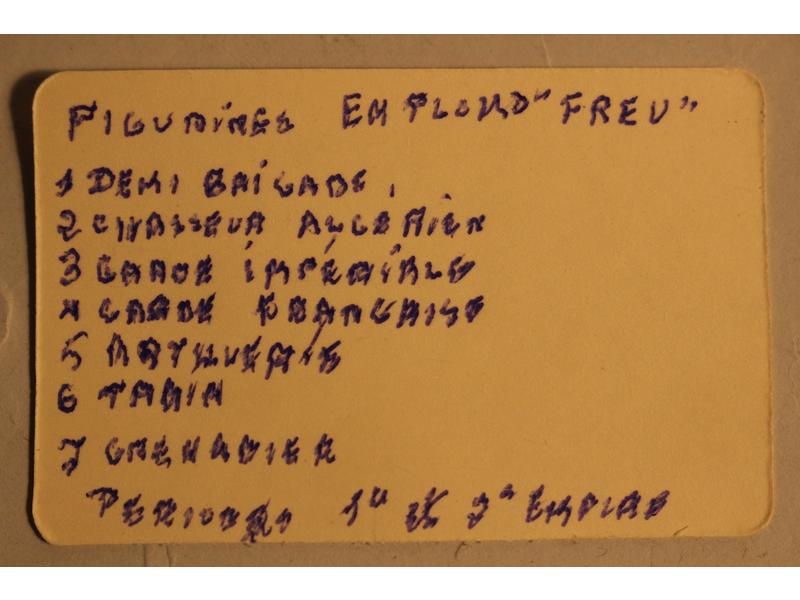 FIGURINES EN PLOMB "FREU"
1 DEMI BRIGADE.
2 CHASSEUR ALGÉRIEN
3 GARDE IMPÉRIALE
4 GARDE FRANÇAISE
5 ARTILLERIE
6 TRAIN
7 GRENADIER
PERIODES 1er et 2e EMPIRE